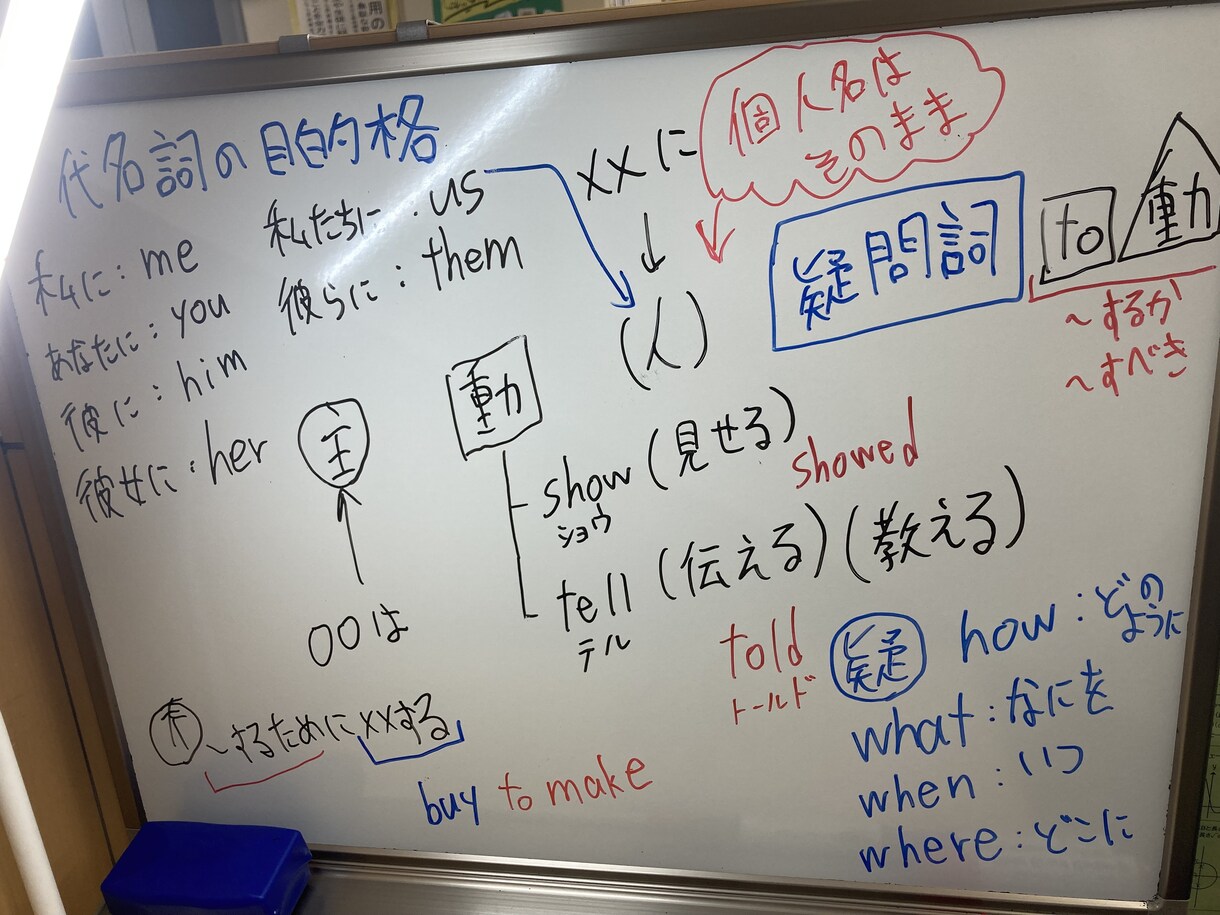 代名詞の目的格
私に：me
あなたに：you
彼に：him
彼女に：her
私たちに：us
彼らに：them
××に
個人名は
そのまま
(人)
疑問詞
to 動
～するか
～すべき
主
○○は
動
show (見せる)
ショウ
showed
tell (伝える) (教える)
テル
told
トールド
疑 how：どの
ように
what：なにを
when：いつ
where：どこに
～するために××する
buy to make